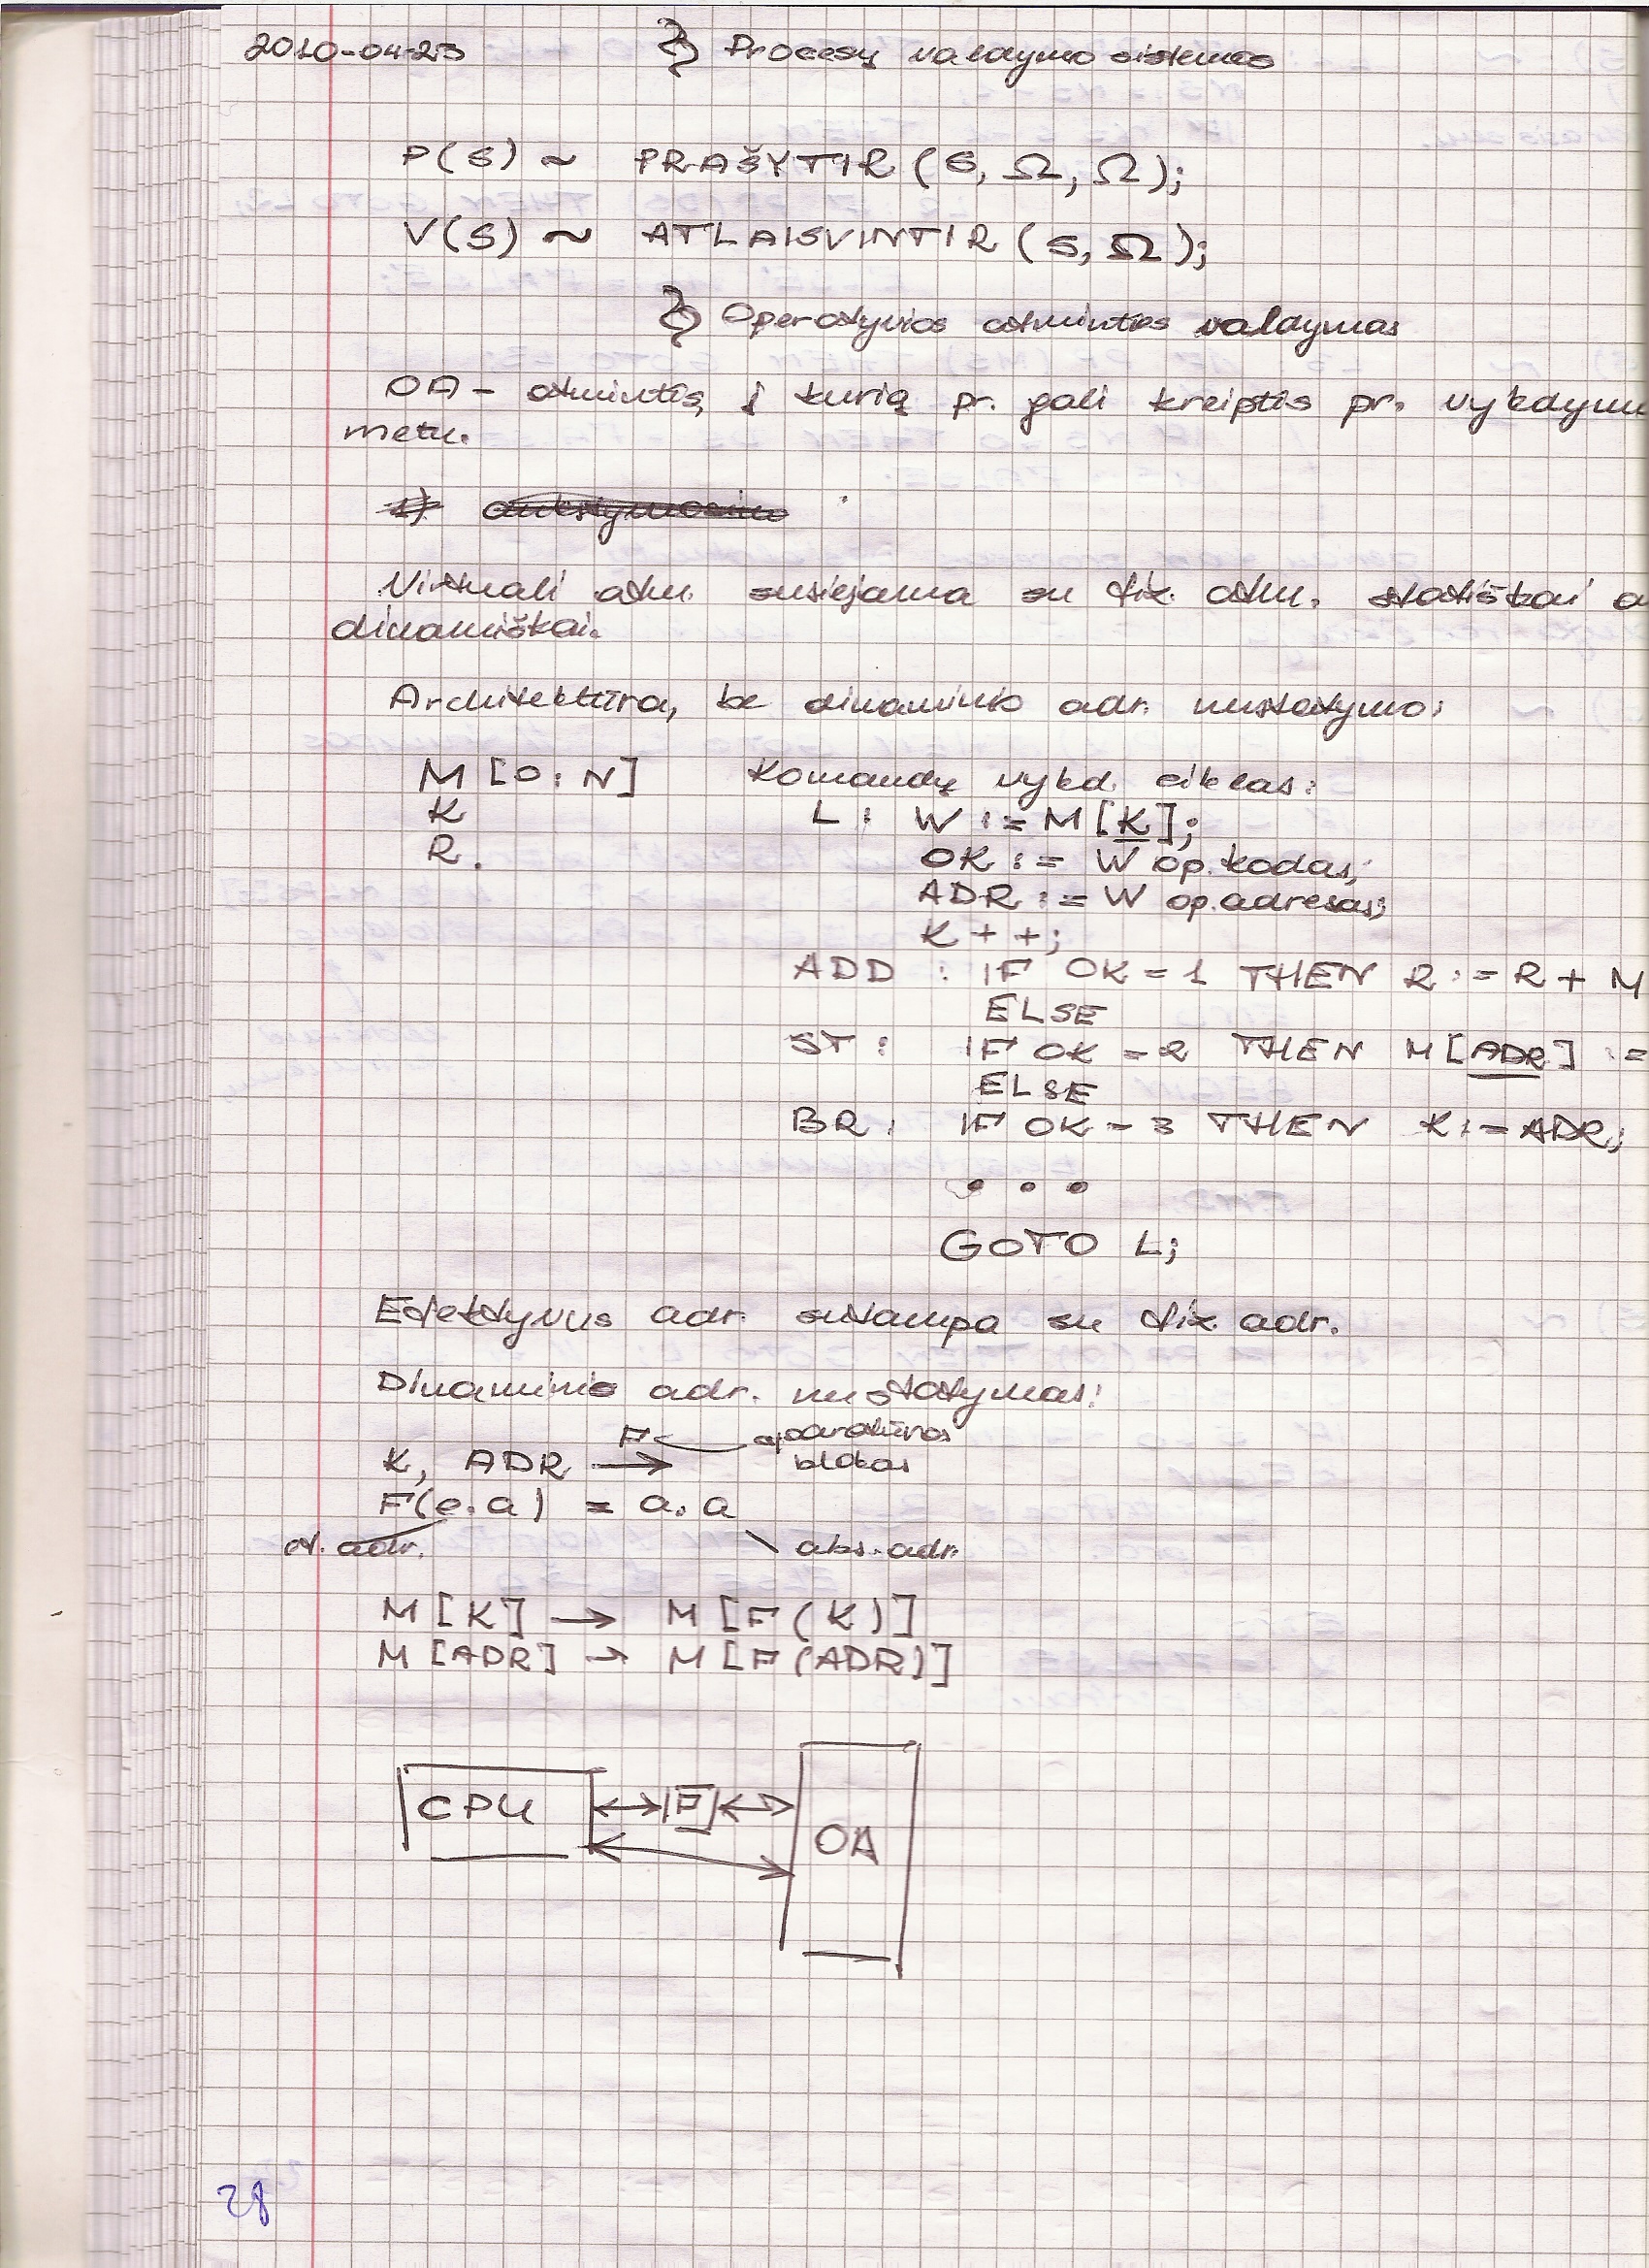 2010-04-23 § Procesų valdymo sistemos
P(S) ~ PRAŠYTIR (S, Ω, Ω);
V(S) ~ ATLAISVINTIR (S, Ω);
§ Operatyvios atminties valdymas
OA - atmintis, į kurią pr. gali kreiptis pr. vykdymu
metu.
1)
Virtuali atm. susiejama su fix. atm. statiškai a
dinamiškai.
Architektūra, be dinaminio adr. nustatymo:
M [0:N] Komandų vykd. ciklas:
K L: W := M[K];
R. OK := W op.kodas;
ADR := W op.adresas;
K++;
ADD : IF OK = 1 THEN R := R + M
ELSE
ST : IF OK = 2 THEN M[ADR] :=
ELSE
BR : IF OK = 3 THEN K := ADR;
• • •
GOTO L;
Efektyvus adr. sutampa su fix adr.
Dinaminio adr. nustatymas:
K, ADR →
F ← aparatūros
blokas
F(e.a) = a.a
ef. adr. abs. adr.
M[K] → M[F(K)]
M[ADR] → M[F(ADR)]
CPU F OA
28